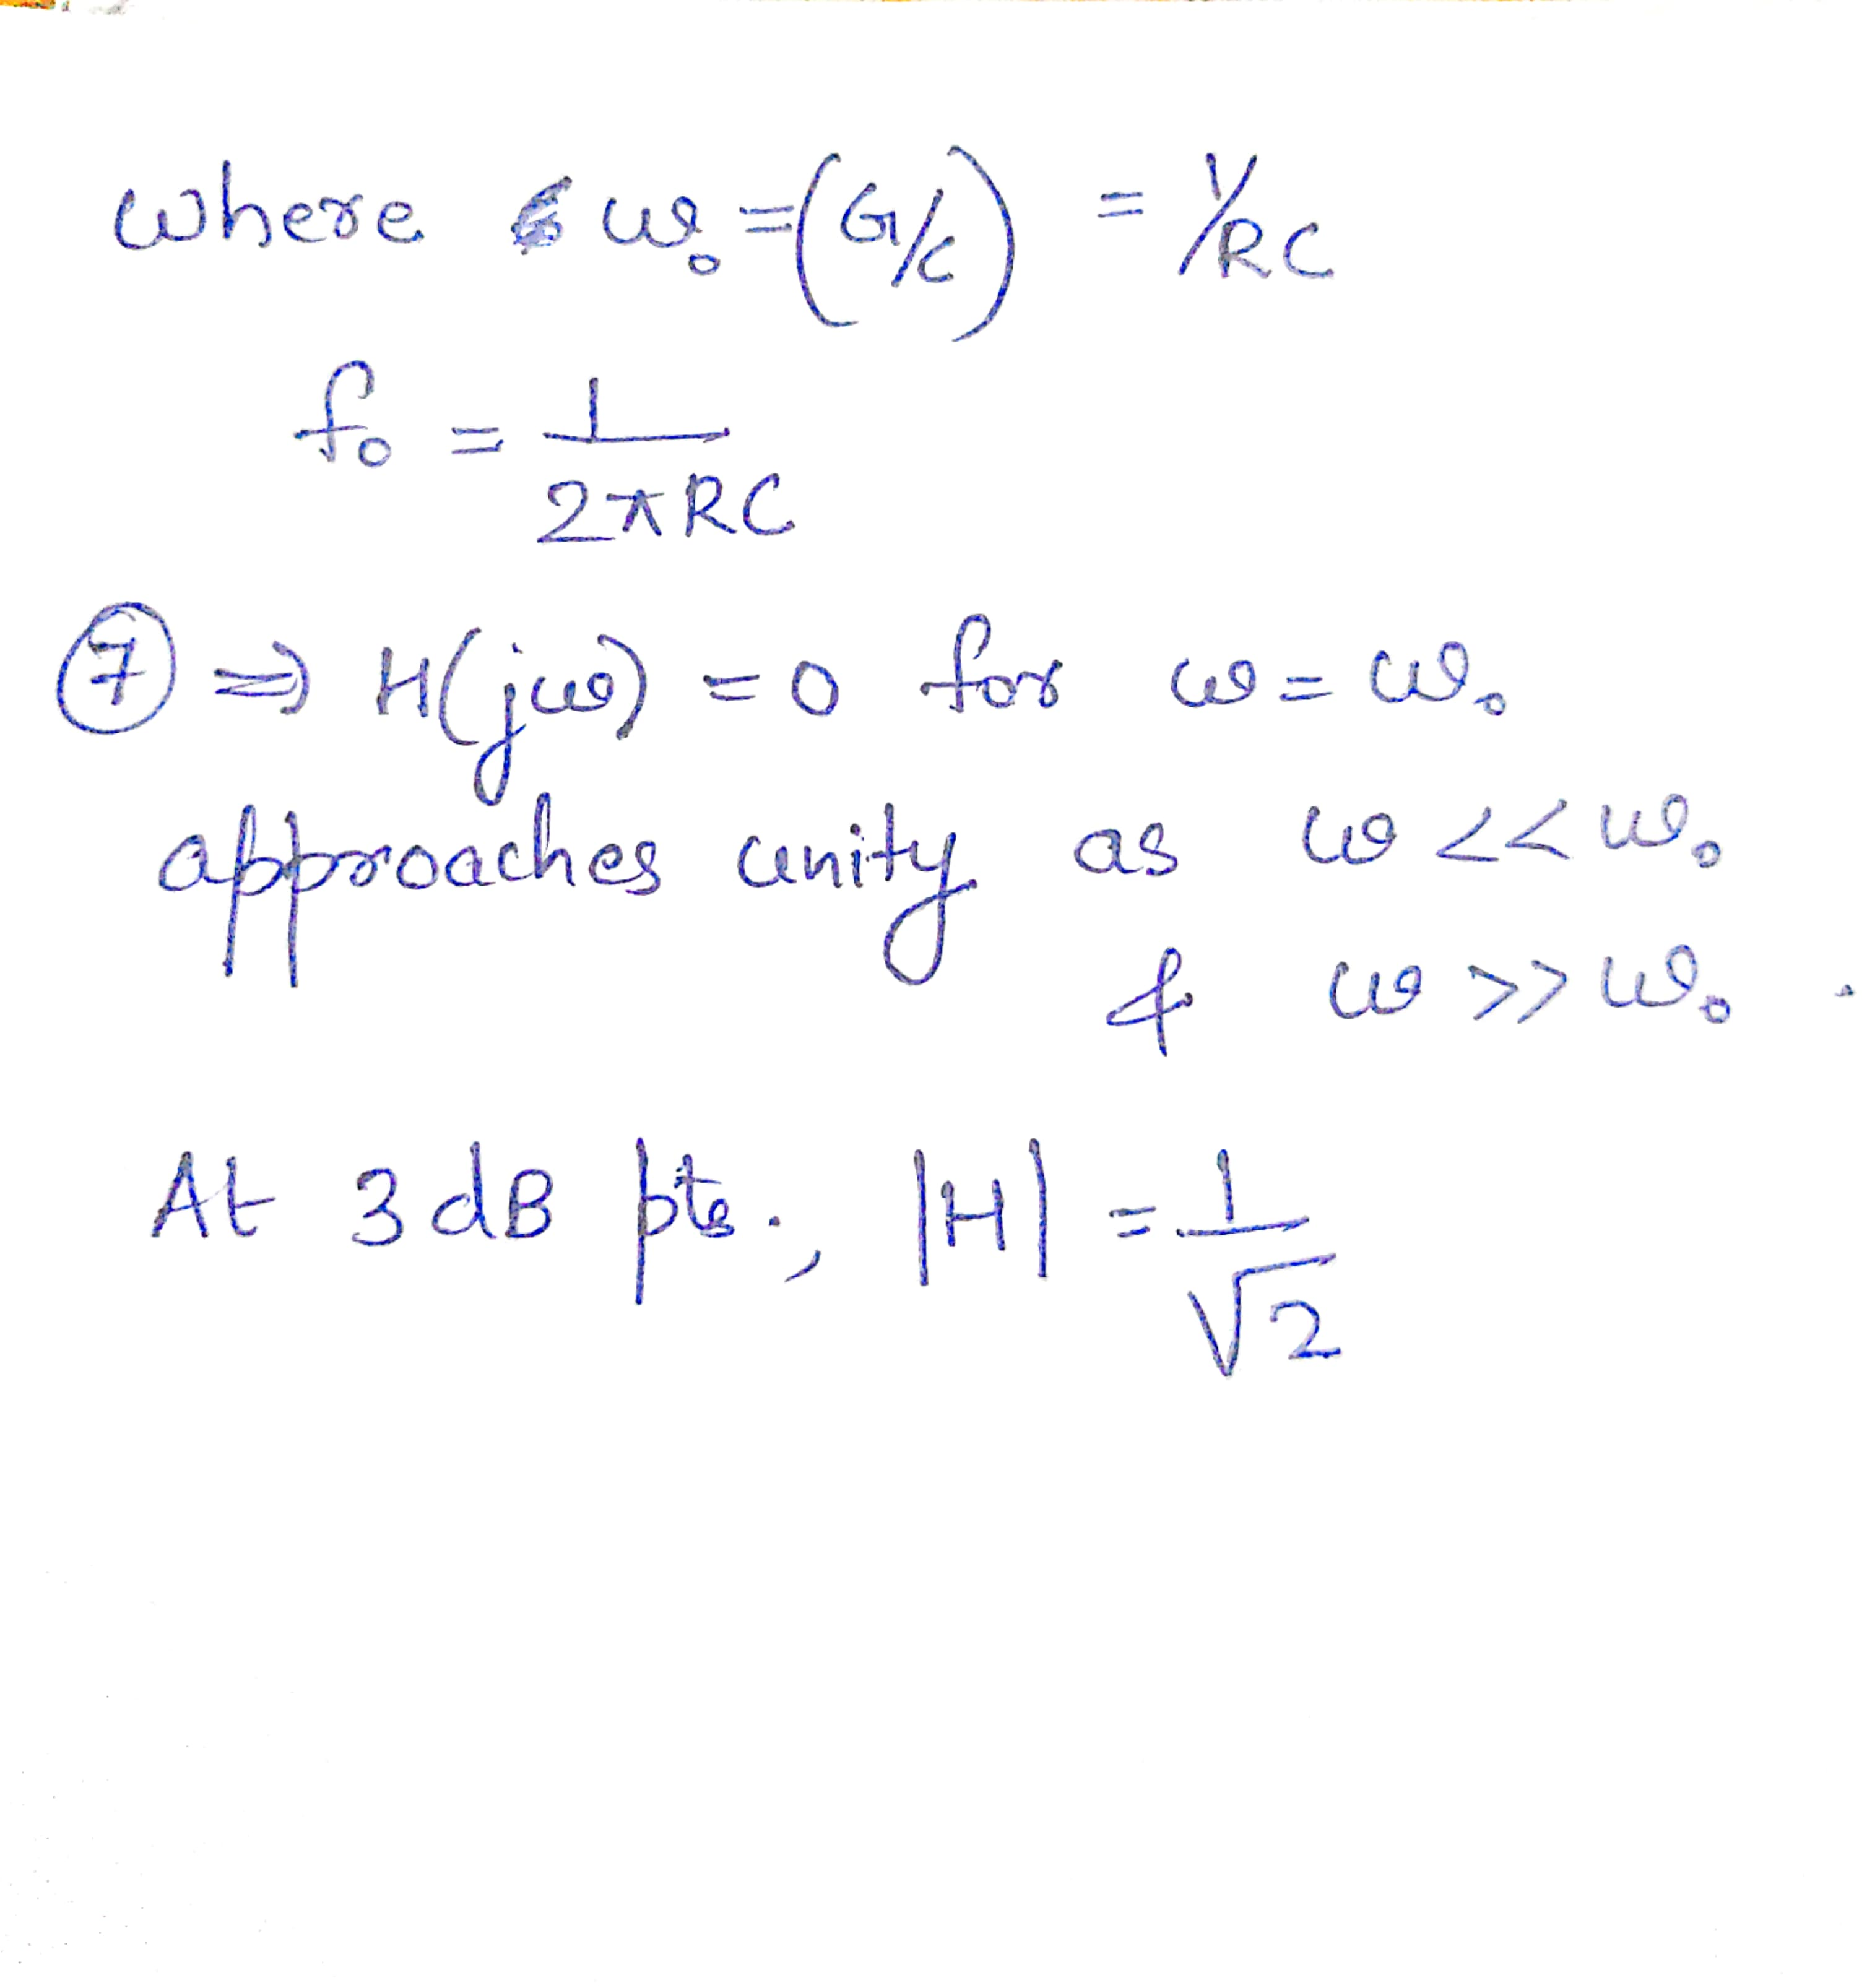 where ω₀ = (G/C) = 1/RC
f₀ = 1/2πRC
⑦ ⇒ H(jω) = 0 for ω = ω₀
approaches unity as ω << ω₀
& ω >> ω₀ .
At 3 dB pts., |H| = 1/√2